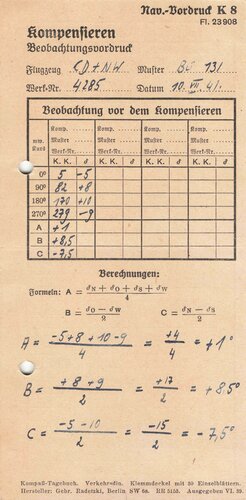 Nav.-Vordruck K 8
Fl. 23908
Kompensieren
Beobachtungsvordruck
Flugzeug CD+NW Muster BS 131
Werk-Nr. 4285 Datum 10. VII. 41.
Beobachtung vor dem Kompensieren
mw. Kurs Komp. Komp. Komp. Komp.
Muster Muster Muster Muster
Werk-Nr. Werk-Nr. Werk-Nr. Werk-Nr.
K.K. δ K.K. δ K.K. δ K.K. δ
0° 5 -5
90° 82 +8
180° 170 +10
270° 279 -9
A +1
B +8,5
C -7,5
Berechnungen:
Formeln: A = δN + δO + δS + δW / 4
B = δO - δW / 2 C = δN - δS / 2
A = -5+8+10-9 / 4 = +4 / 4 = +1°
B = +8+9 / 2 = +17 / 2 = +8,5°
C = -5-10 / 2 = -15 / 2 = -7,5°
Kompaß-Tagebuch. Verkehrsdin. Klemmdeckel mit 50 Einzelblättern.
Hersteller: Gebr. Radetzki, Berlin SW 68. Ausgegeben VI. 39.